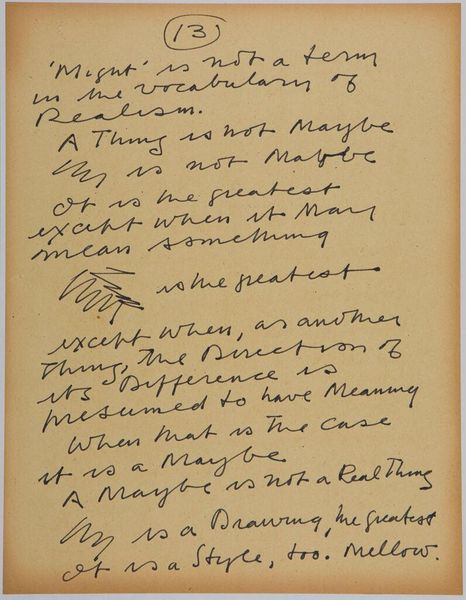 13
'Might' is not a term
in the vocabulary of
Realism.
A Thing is not Maybe
is not Maybe
It is the greatest
except when it May
mean something
is the greatest
except when, as another
Thing, The Direction of
its Difference is
presumed to have Meaning
When that is The case
it is a Maybe
A Maybe is not a Real Thing
is a Drawing, the greatest
It is a Style, too. Mellow.